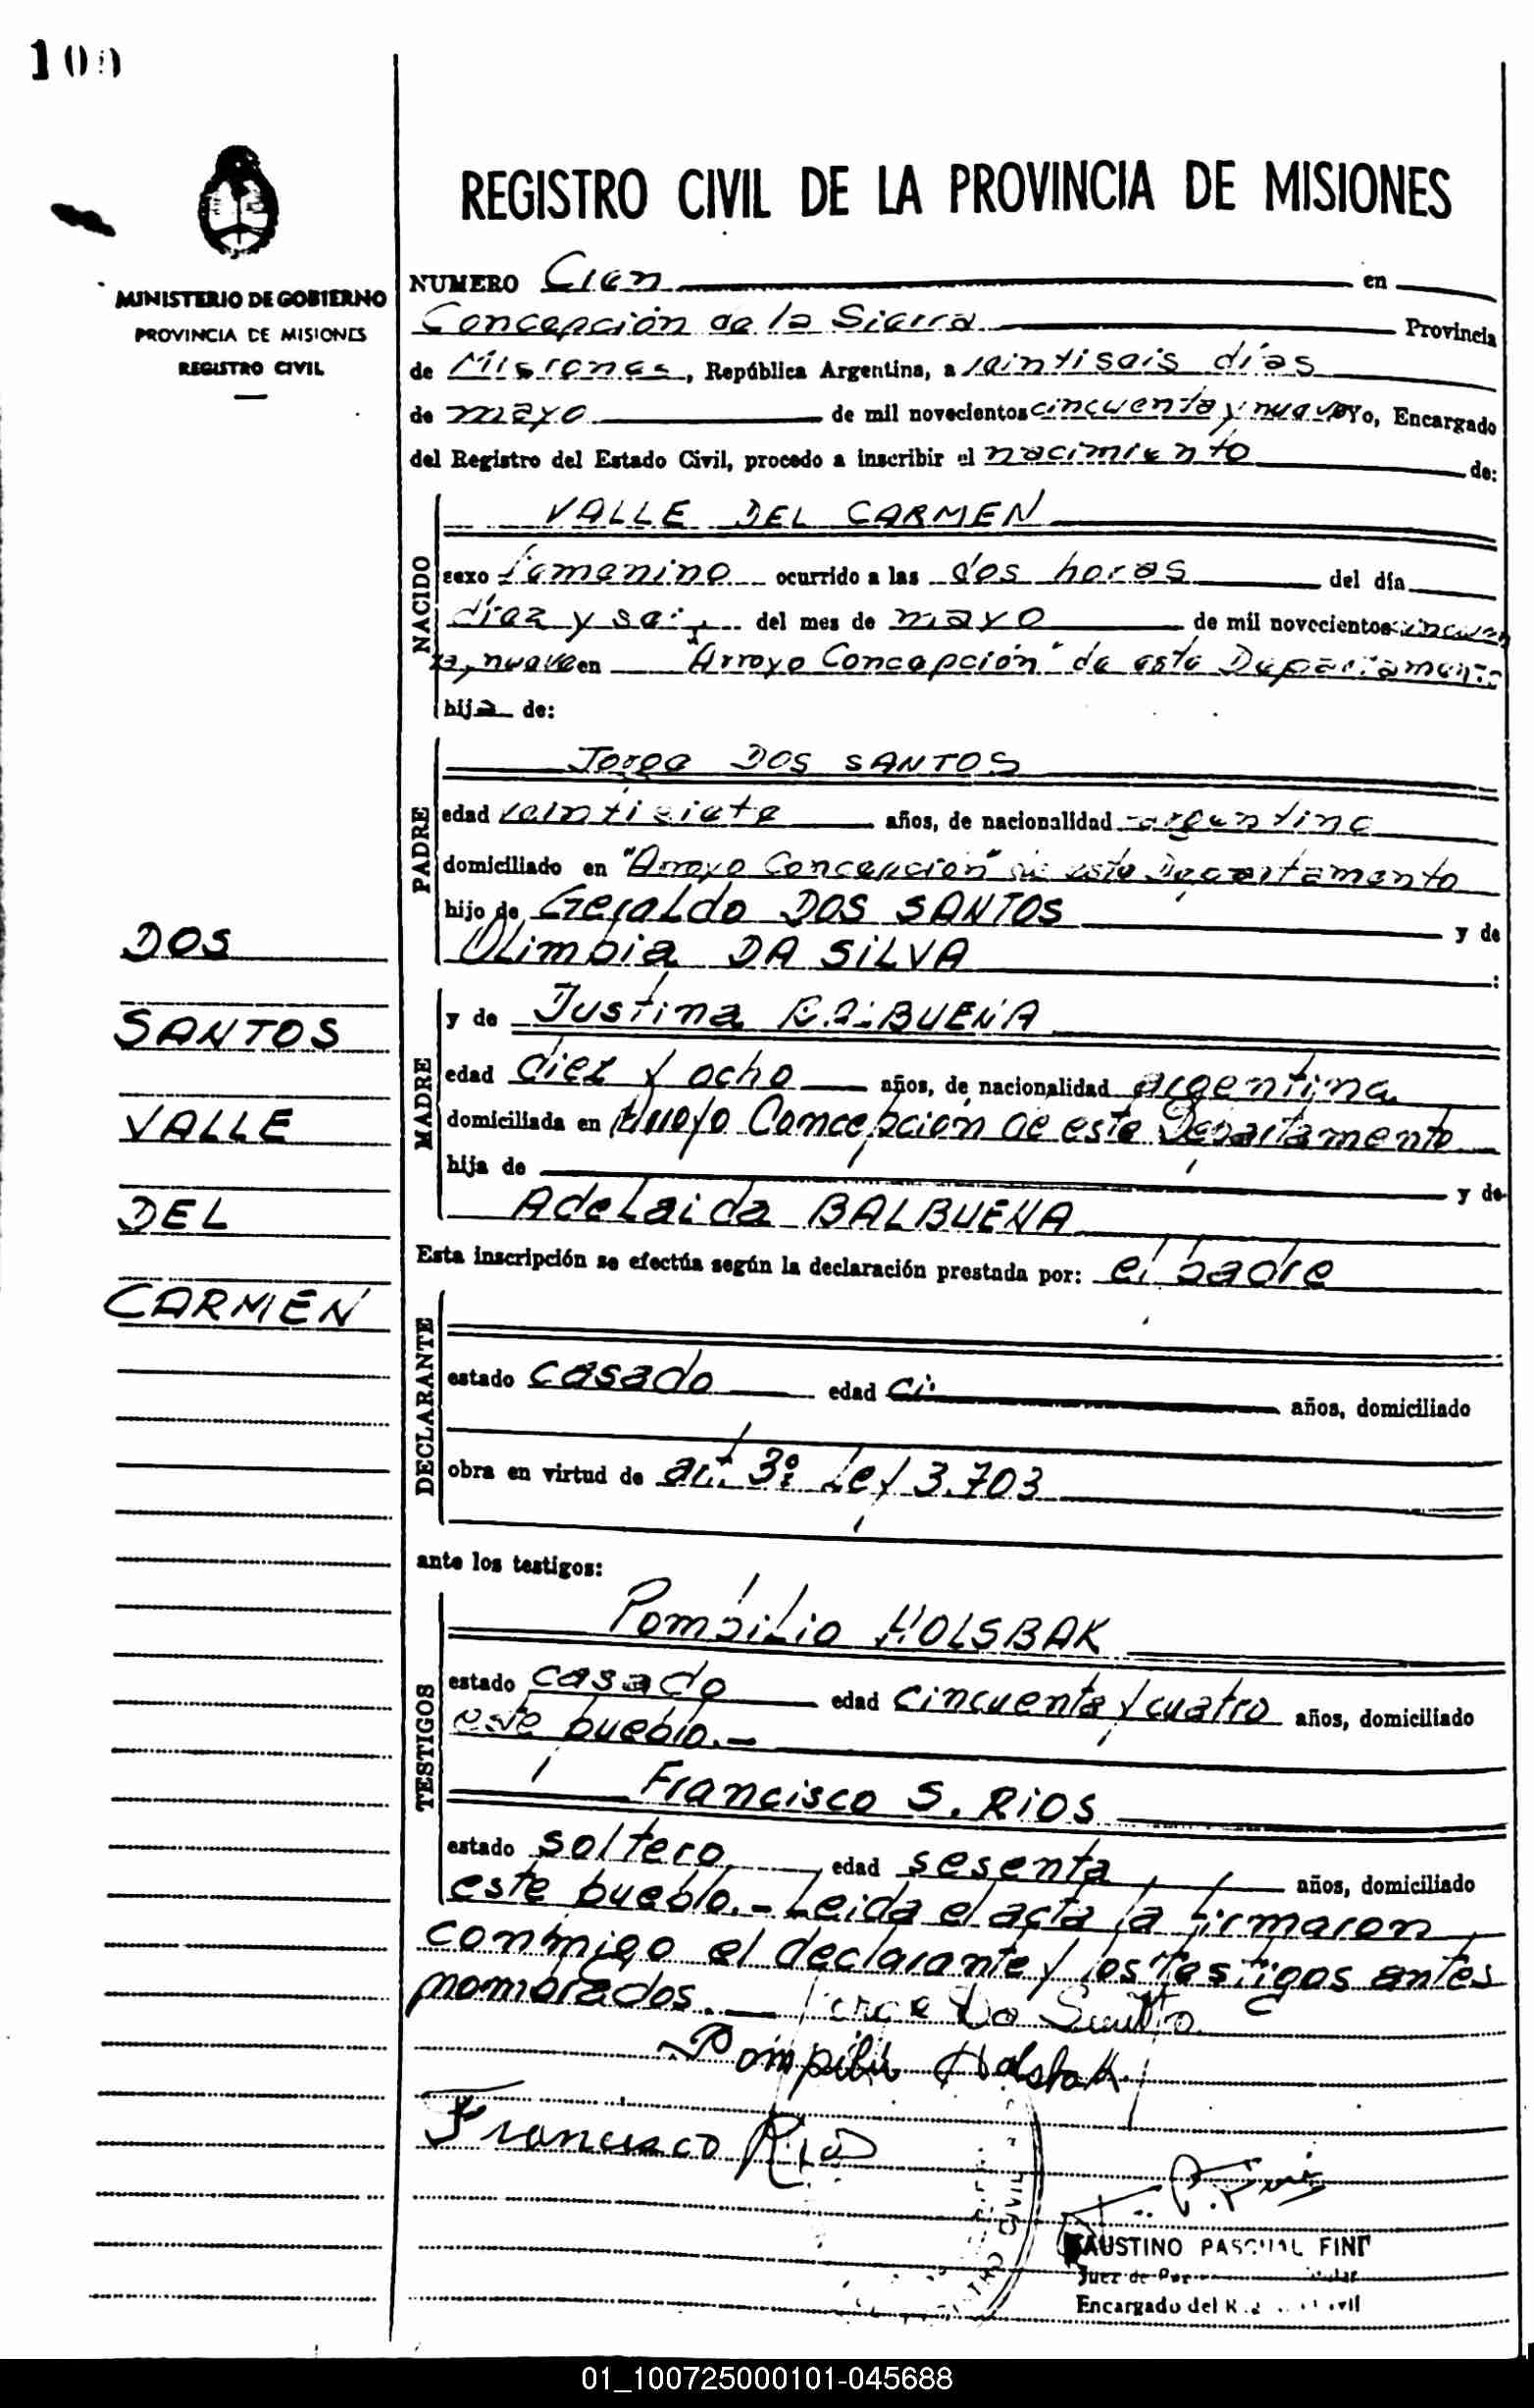 100
MINISTERIO DE GOBIERNO
PROVINCIA DE MISIONES
REGISTRO CIVIL
DOS
SANTOS
VALLE
DEL
CARMEN
REGISTRO CIVIL DE LA PROVINCIA DE MISIONES
NUMERO Cien en
Concepción de la Sierra Provincia
de Misiones, República Argentina, a veintiseis días
de mayo de mil novecientos cincuenta y nueve Yo, Encargado
del Registro del Estado Civil, procedo a inscribir el nacimiento de:
NACIDO
VALLE DEL CARMEN
sexo femenino ocurrido a las dos horas del día
diez y seis del mes de mayo de mil novecientos cincuen
ta y nueve en "Arroyo Concepción" de este Departamento
hija de:
PADRE
Jorge DOS SANTOS
edad veintisiete años, de nacionalidad argentino
domiciliado en "Arroyo Concepción" de este Departamento
hijo de Geraldo DOS SANTOS y de
Olimpia DA SILVA :
MADRE
y de Justina BALBUENA
edad diez y ocho años, de nacionalidad argentina
domiciliada en Arroyo Concepción de este Departamento
hija de y de
Adelaida BALBUENA
Esta inscripción se efectúa según la declaración prestada por: el padre
DECLARANTE
estado casado edad años, domiciliado
obra en virtud de art. 3º Ley 3.703
ante los testigos:
TESTIGOS
Pompilio HOLSBAK
estado casado edad cincuenta y cuatro años, domiciliado
este pueblo.-
Francisco S. RIOS
estado soltero edad sesenta años, domiciliado
este pueblo.- Leida el acta la firmaron
conmigo el declarante y los testigos antes
nombrados.— Jorge Do Santo
Pompilio Holsbak
Francisco Rio
CIVIL
FAUSTINO PASCUAL FINI
Juez de
Encargado del
01_100725000101-045688